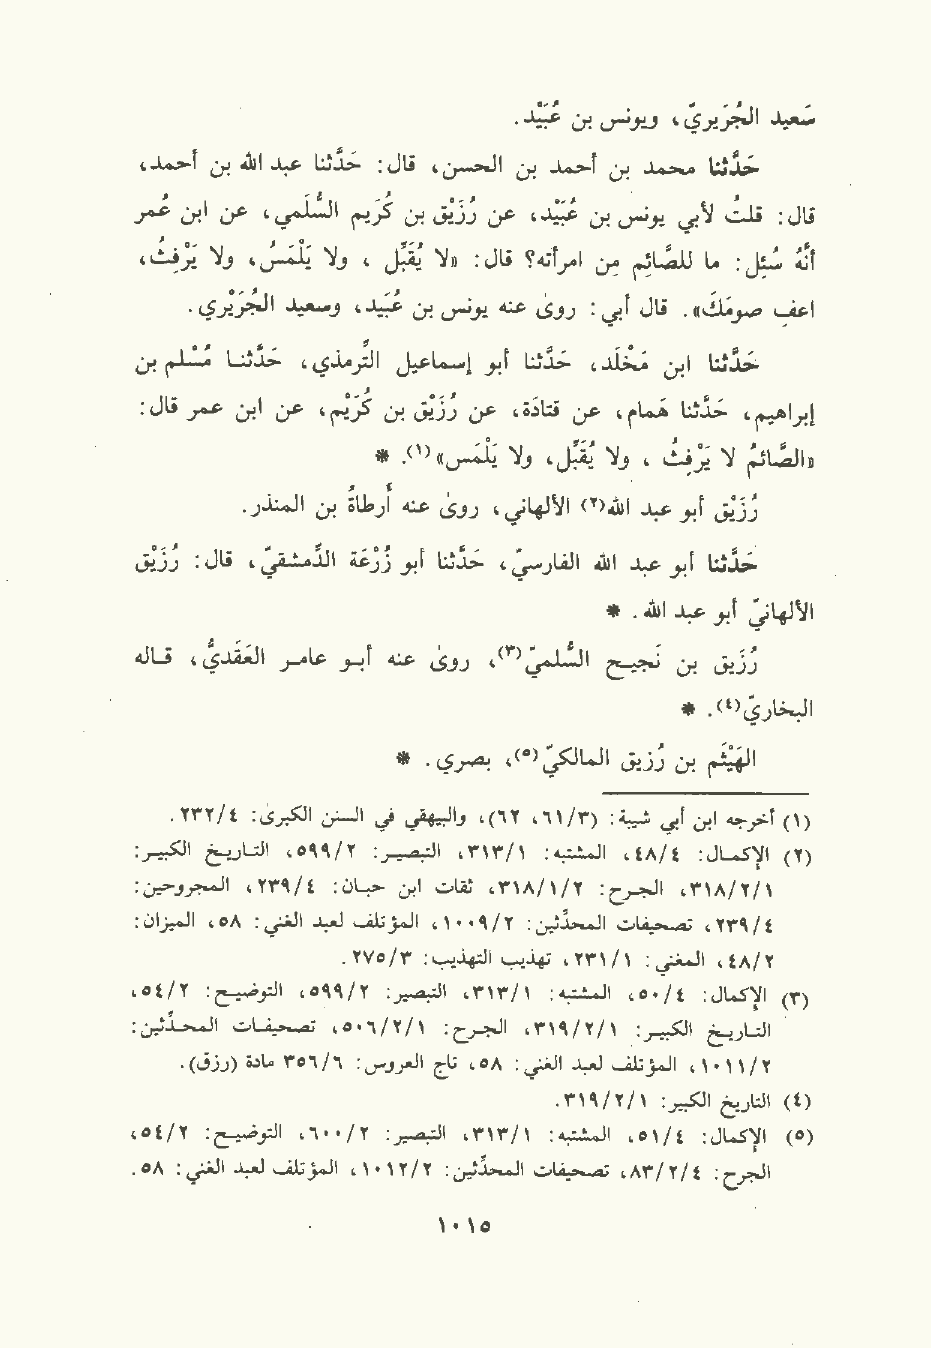 سَعيد الجُرَيريّ، ويونس بن عُبَيْد.
حَدّثنا محمد بن أحمد بن الحسن، قال: حَدّثنا عبد الله بن أحمد،
قال: قلتُ لأبي يونس بن عُبَيْد، عن رُزَيْق بن كُرَيم السُّلَمي، عن ابن عُمر
أنّهُ سُئِل: ما للصّائِم مِن امرأته؟ قال: «لا يُقَبِّل ، ولا يَلْمَسُ، ولا يَرْفِثُ،
اعفِ صومَكَ». قال أبي: روىٰ عنه يونس بن عُبَيد، وسعيد الجُرَيْري.
حَدّثنا ابن مَخْلَد، حَدّثنا أبو إسماعيل التُرمذي، حَدّثنا مُسْلم بن
إبراهيم، حَدّثنا هَمام، عن قتادَة، عن رُزَيْق بن كُرَيْم، عن ابن عمر قال:
«الصّائمُ لا يَرْفِثُ ، ولا يُقَبِّل، ولا يَلْمَس»(١). *
رُزَيْق أبو عبد الله(٢) الألهاني، روىٰ عنه أُرطاةُ بن المنذر.
حَدّثنا أبو عبد الله الفارسيّ، حَدّثنا أبو زُرْعَة الدِّمشقيّ، قال: رُزَيْق
الألهانيّ أبو عبد الله. *
رُزَيق بن نَجيح السُّلميّ(٣)، روىٰ عنه أبو عامر العَقَديُّ، قاله
البخاريّ(٤). *
الهَيْثَم بن رُزيق المالكيّ(٥)، بصري. *
(١) أخرجه ابن أبي شيبة: (٣/ ٦١، ٦٢)، والبيهقي في السنن الكبرىٰ: ٤/ ٢٣٢.
(٢) الإكمال: ٤/ ٤٨، المشتبه: ١/ ٣١٣، التبصير: ٢/ ٥٩٩، التاريخ الكبير:
١/ ٢/ ٣١٨، الجرح: ٢/ ١/ ٣١٨، ثقات ابن حبان: ٤/ ٢٣٩، المجروحين:
٤/ ٢٣٩، تصحيفات المحدّثين: ٢/ ١٠٠٩، المؤتلف لعبد الغني: ٥٨، الميزان:
٢/ ٤٨، المغني: ١/ ٢٣١، تهذيب التهذيب: ٣/ ٢٧٥.
(٣) الإكمال: ٤/ ٥٠، المشتبه: ١/ ٣١٣، التبصير: ٢/ ٥٩٩، التوضيح: ٢/ ٥٤،
التاريخ الكبير: ١/ ٢/ ٣١٩، الجرح: ١/ ٢/ ٥٠٦، تصحيفات المحدّثين:
٢/ ١٠١١، المؤتلف لعبد الغني: ٥٨، تاج العروس: ٦/ ٣٥٦ مادة (رزق).
(٤) التاريخ الكبير: ١/ ٢/ ٣١٩.
(٥) الإكمال: ٤/ ٥١، المشتبه: ١/ ٣١٣، التبصير: ٢/ ٦٠٠، التوضيح: ٢/ ٥٤،
الجرح: ٤/ ٢/ ٨٣، تصحيفات المحدّثين: ٢/ ١٠١٢، المؤتلف لعبد الغني: ٥٨.
١٠١٥